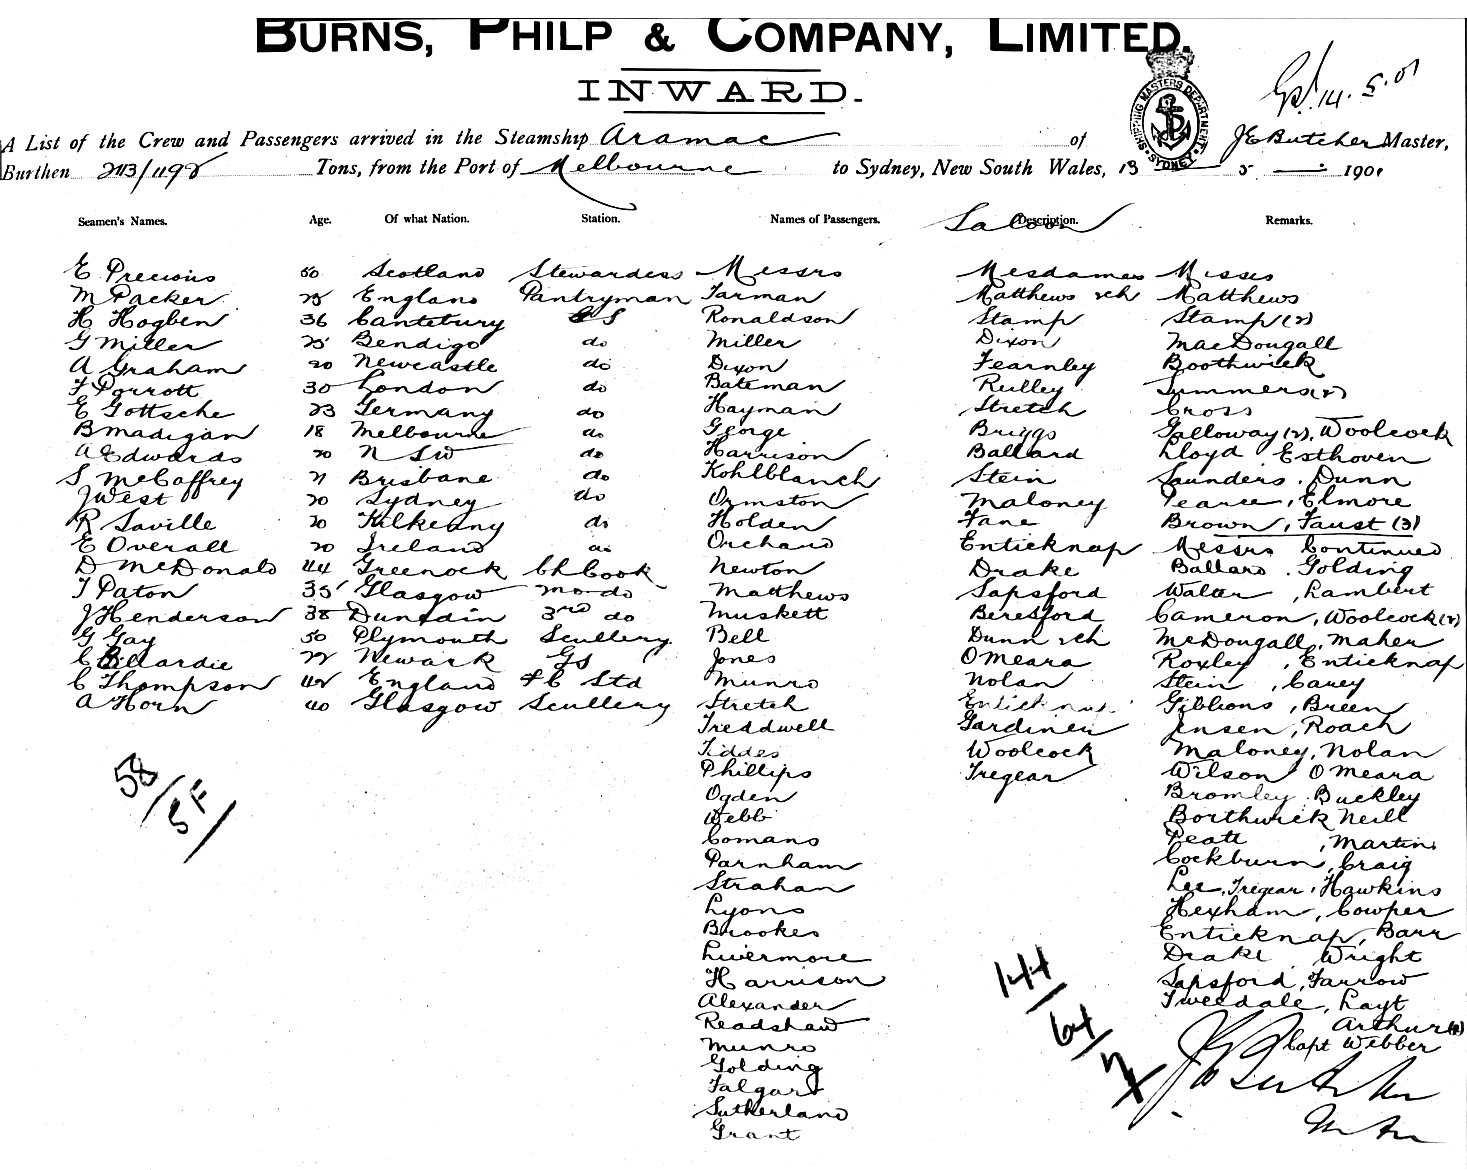 BURNS, PHILP & COMPANY, LIMITED.
INWARD.
Gd. 14.5.01
SHIPPING MASTERS DEPARTMENT SYDNEY
A List of the Crew and Passengers arrived in the Steamship Aramac of J E Butcher Master,
Burthen 2113/1192 Tons, from the Port of Melbourne to Sydney, New South Wales, 13 5 1901
Seamen's Names. Age. Of what Nation. Station. Names of Passengers. Saloon Description. Remarks.
E Precious 50 Scotland Stewardess Messrs Mesdames Misses
M Packer 25 England Pantryman Farman Matthews & ch Matthews
H Hogben 36 Cantebury G S Ronaldson Stamp Stamp (2)
G Miller 25 Bendigo do Miller Dixon MacDougall
A Graham 20 Newcastle do Dixon Fearnley Boothwick
F Porrott 30 London do Bateman Reilley Summers (2)
E Gottsche 23 Germany do Hayman Stretch Cross
B Madigan 18 Melbourne do George Briggs Galloway (2), Woolcock
A Edwards 20 N S W do Harrison Ballard Lloyd Esthoven
S McCaffrey 21 Brisbane do Kohlblanch Stein Saunders. Dunn
J West 20 Sydney do Ormston Maloney Pearce, Elmore
R Saville 20 Kilkenny do Holden Fane Brown, Faust (3)
E Overall 20 Ireland do Orchard Enticknap Messrs Continued
D McDonald 44 Greenock Ch Cook Newton Drake Ballard. Golding
T Paton 35 Glasgow do Matthews Sapsford Walter, Lambert
J Henderson 38 Dunedin 3rd do Muskett Beresford Cameron, Woolcock (2)
G Gay 50 Plymouth Scullery Bell Dunn & ch McDougall, Maher
C Billardie 22 Newark G S Jones O'Meara Roxley, Enticknap
C Thompson 42 England F C Std Munro Nolan Stein, Carey
A Horn 40 Glasgow Scullery Stretch Enticknap Gibbons, Breen
Treddwell Gardiner Jensen, Roach
Tiddes Woolcock Maloney, Nolan
Phillips Tregear Wilson O'Meara
Ogden Bromley Buckley
Webb Borthwick Neill
Comans Peatt, Martin
Parnham Cockburn, Craig
Strahan Lee, Tregear, Hawkins
Lyons Hexham, Cowper
Brookes Enticknap, Barr
Livermore Drake Wright
Harrison Sapsford, Farrow
Alexander Tweedale, Layt
Readshaw Arthur
Munro Capt Webber
Golding
Falgart
Sutherland
Grant
58/5F/
144/64/
J E Butcher